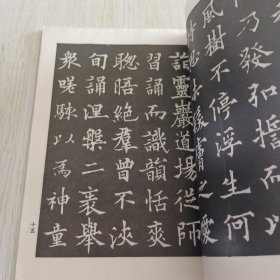 乃發
風樹不停浮生何
膚之愛
詣靈巖道場從師
習誦而識韻恬爽
聰晤絕羣曾不浹
旬誦涅槃二袠舉
衆嗟駭以為神童
十五